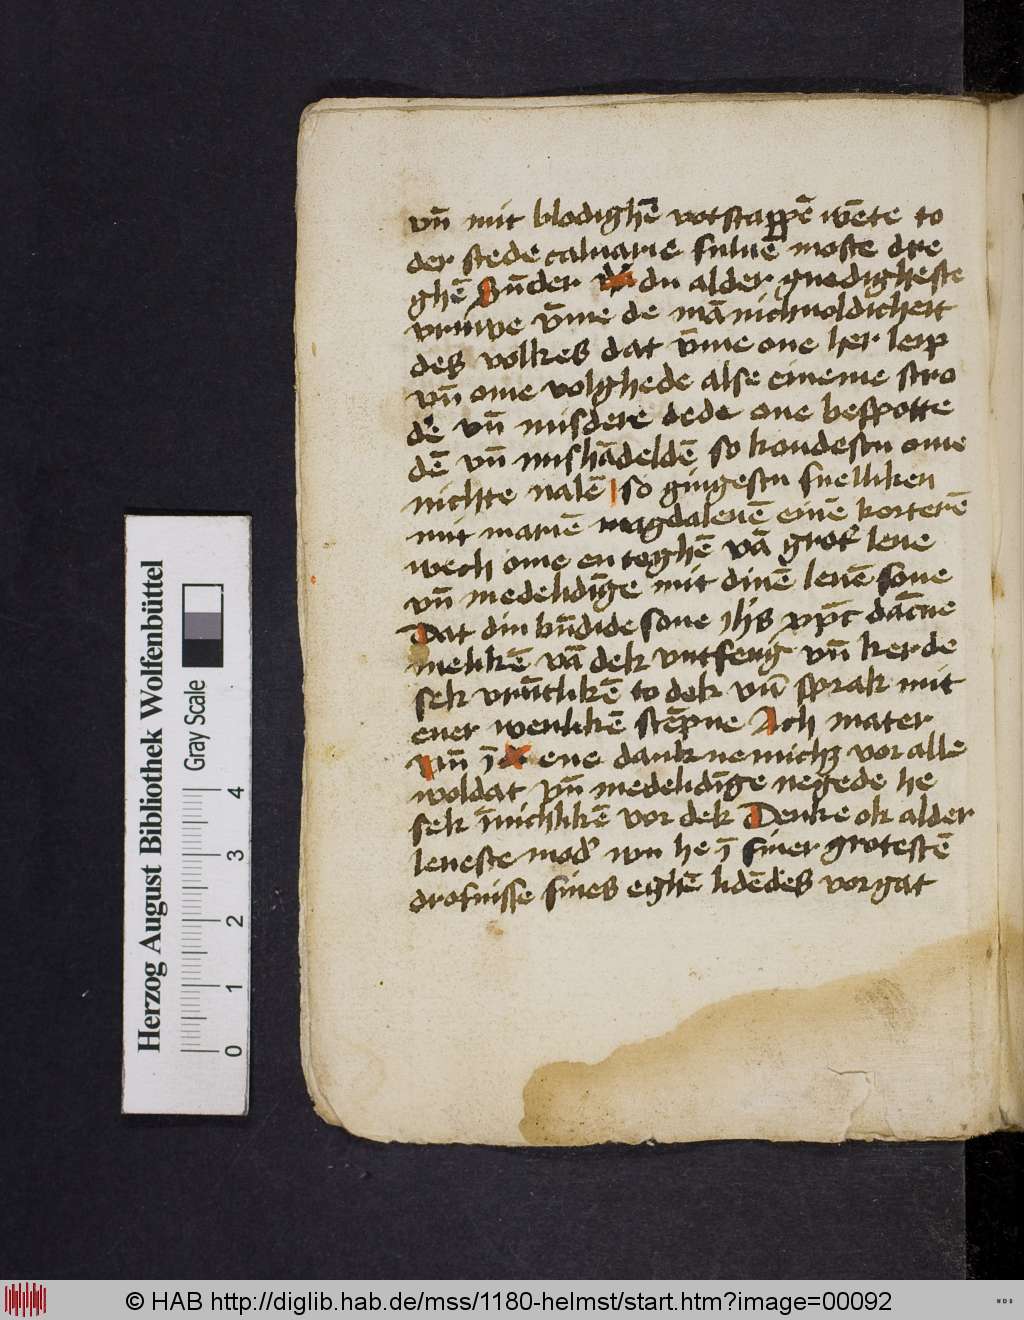 vn̄ mit blodighē votstappē wēte to
der stede caluarie suluē moste dre
ghē Sūder du alder gnedigheste
vruwe v̄me de mānichuoldicheit
des volkes dat v̄me one her leip
vn̄ ome volghede alse eineme stro
dē vn̄ misdere dede one bespotte
dē vn̄ mishādeldē so kondestu ome
nichte nalē so gingestu snelliken
mit mariē magdalenē einē korterē
wech ome en teghē vā grot' leue
vn̄ medelidīge mit dinē leuē sone
Dat din bn̄dide sone ihs xpc dācne
melikē vā dek vntfeng vn̄ kerde
sek vrūtlikē to dek vn̄ sprak mit
ener wenlikē stēpne Ach mater
Vn̄ ī ene dank nemichz vor alle
woldat vn̄ medelidīge negede he
sek īnichlikē vor dek Denke ok alder
leueste mod' wu he ī siner grotestē
drofnisse sines eighē lidēdes vorgat
Herzog August Bibliothek Wolfenbüttel
Gray Scale
0 1 2 3 4
© HAB http://diglib.hab.de/mss/1180-helmst/start.htm?image=00092